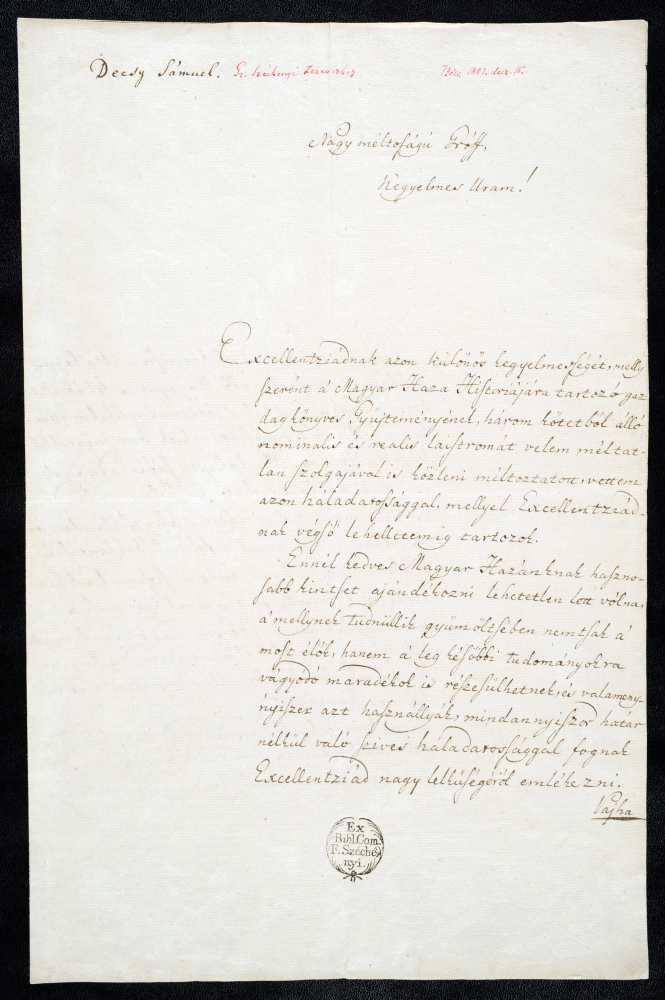 Decsy Sámuel. Gr. Széchenyi Ferencnek Bécs 1801. dec.
Nagy méltoságú Gróff,
Kegyelmes Uram!
Excellentziádnak azon különös kegyelmességét, melly
szerént á Magyar Haza Historiájára tartozó gaz
dag könyves Gyüjteményének, három kötetböl álló
nominalis és realis laistromát velem méltat-
lan szolgajával is közleni méltoztatott, vettem
azon háladatossággal, mellyel Excellentziád-
nak végsö lehelletemig tartozok.
Ennél kedves Magyar Hazánknak haszno-
sabb kintset ajándékozni lehetetlen lett vólna,
á mellynek tudnüllik gyümöltsében nemtsak á
most élök, hanem á leg késöbbi tudományokra
vágyodó maradékok is részesülhetnek, és valameny-
nyiszer azt használlyák, mindannyiszor határ
nélkül való szives háladatossággal fognak
Excellentziád nagy lelküségéröl emlékezni.
Vajha
Ex
Bibl. Com.
F. Széché
nyi.